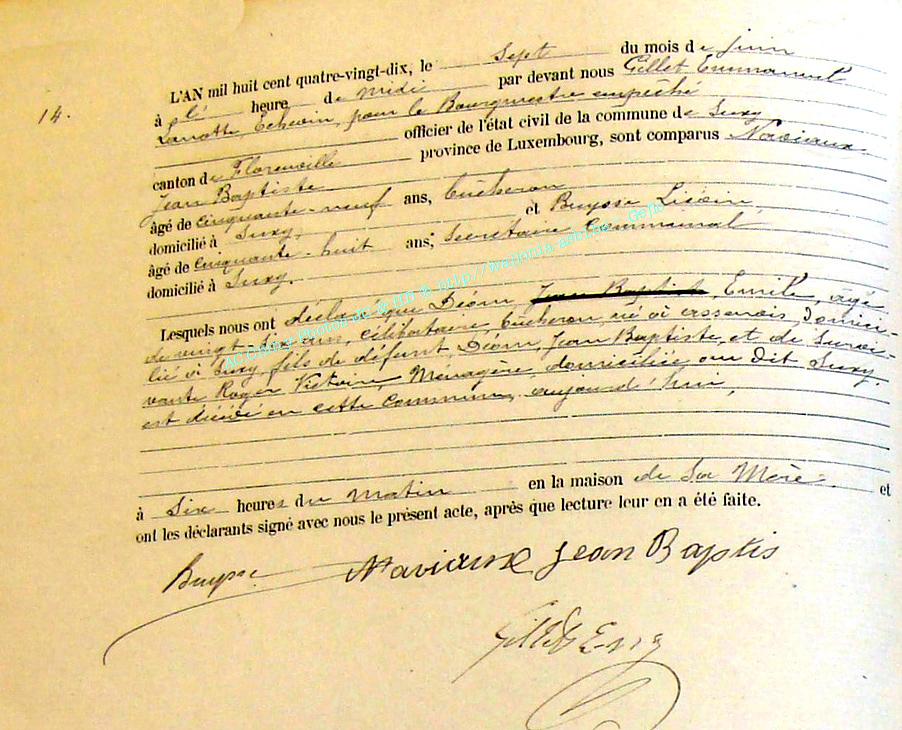 14.
L'AN mil huit cent quatre-vingt-dix, le Sept du mois de juin
à l' heure de midi par devant nous Gillet Emmanuel
Echevin, pour le Bourgmestre empeché
officier de l'état civil de la commune de Suxy
canton de Florenville province de Luxembourg, sont comparus Naviaux
Jean Baptiste
âgé de cinquante-neuf ans, bûcheron
domicilié à Suxy, et Buysse
âgé de cinquante-huit ans, Secrétaire Communal
domicilié à Suxy.
Lesquels nous ont déclaré que Déom, Jean Baptiste, Emile, âgé
de vingt-six ans, célibataire, bûcheron, né à assenois domici-
lié à Suxy, fils de défunt Déom, Jean Baptiste, et de Survi-
vante Roger Victoire, Ménagère domiciliée au dit Suxy,
est décédé en cette commune, aujourd'hui,
à Six heures du matin en la maison de Sa Mère. et
ont les déclarants signé avec nous le présent acte, après que lecture leur en a été faite.
Buysse Naviaux Jean Baptis
Gillet Emg